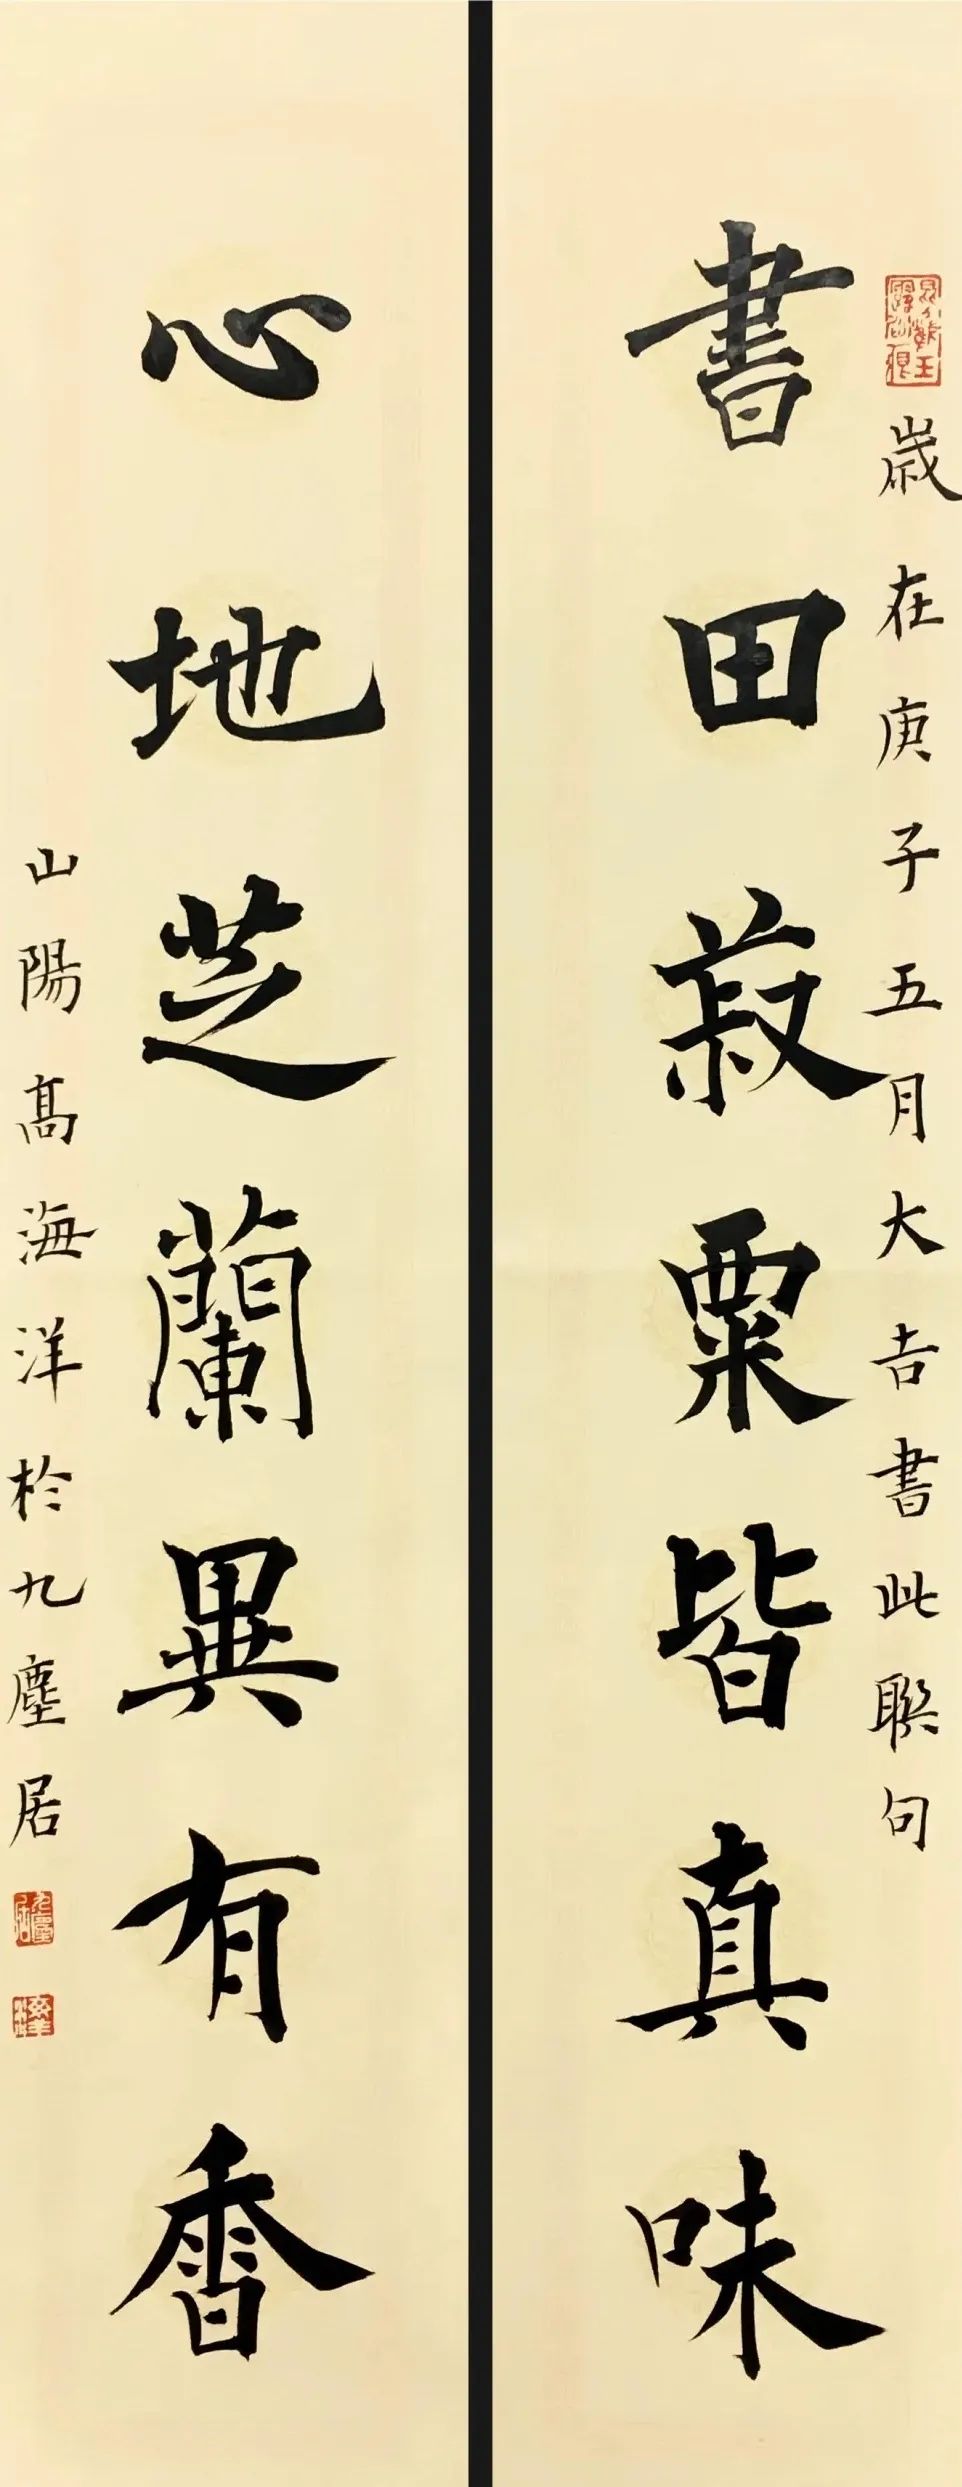 歲在庚子五月大吉書此聯句
書田菽粟皆真味
心地芝蘭異有香
山陽髙海洋於九塵居